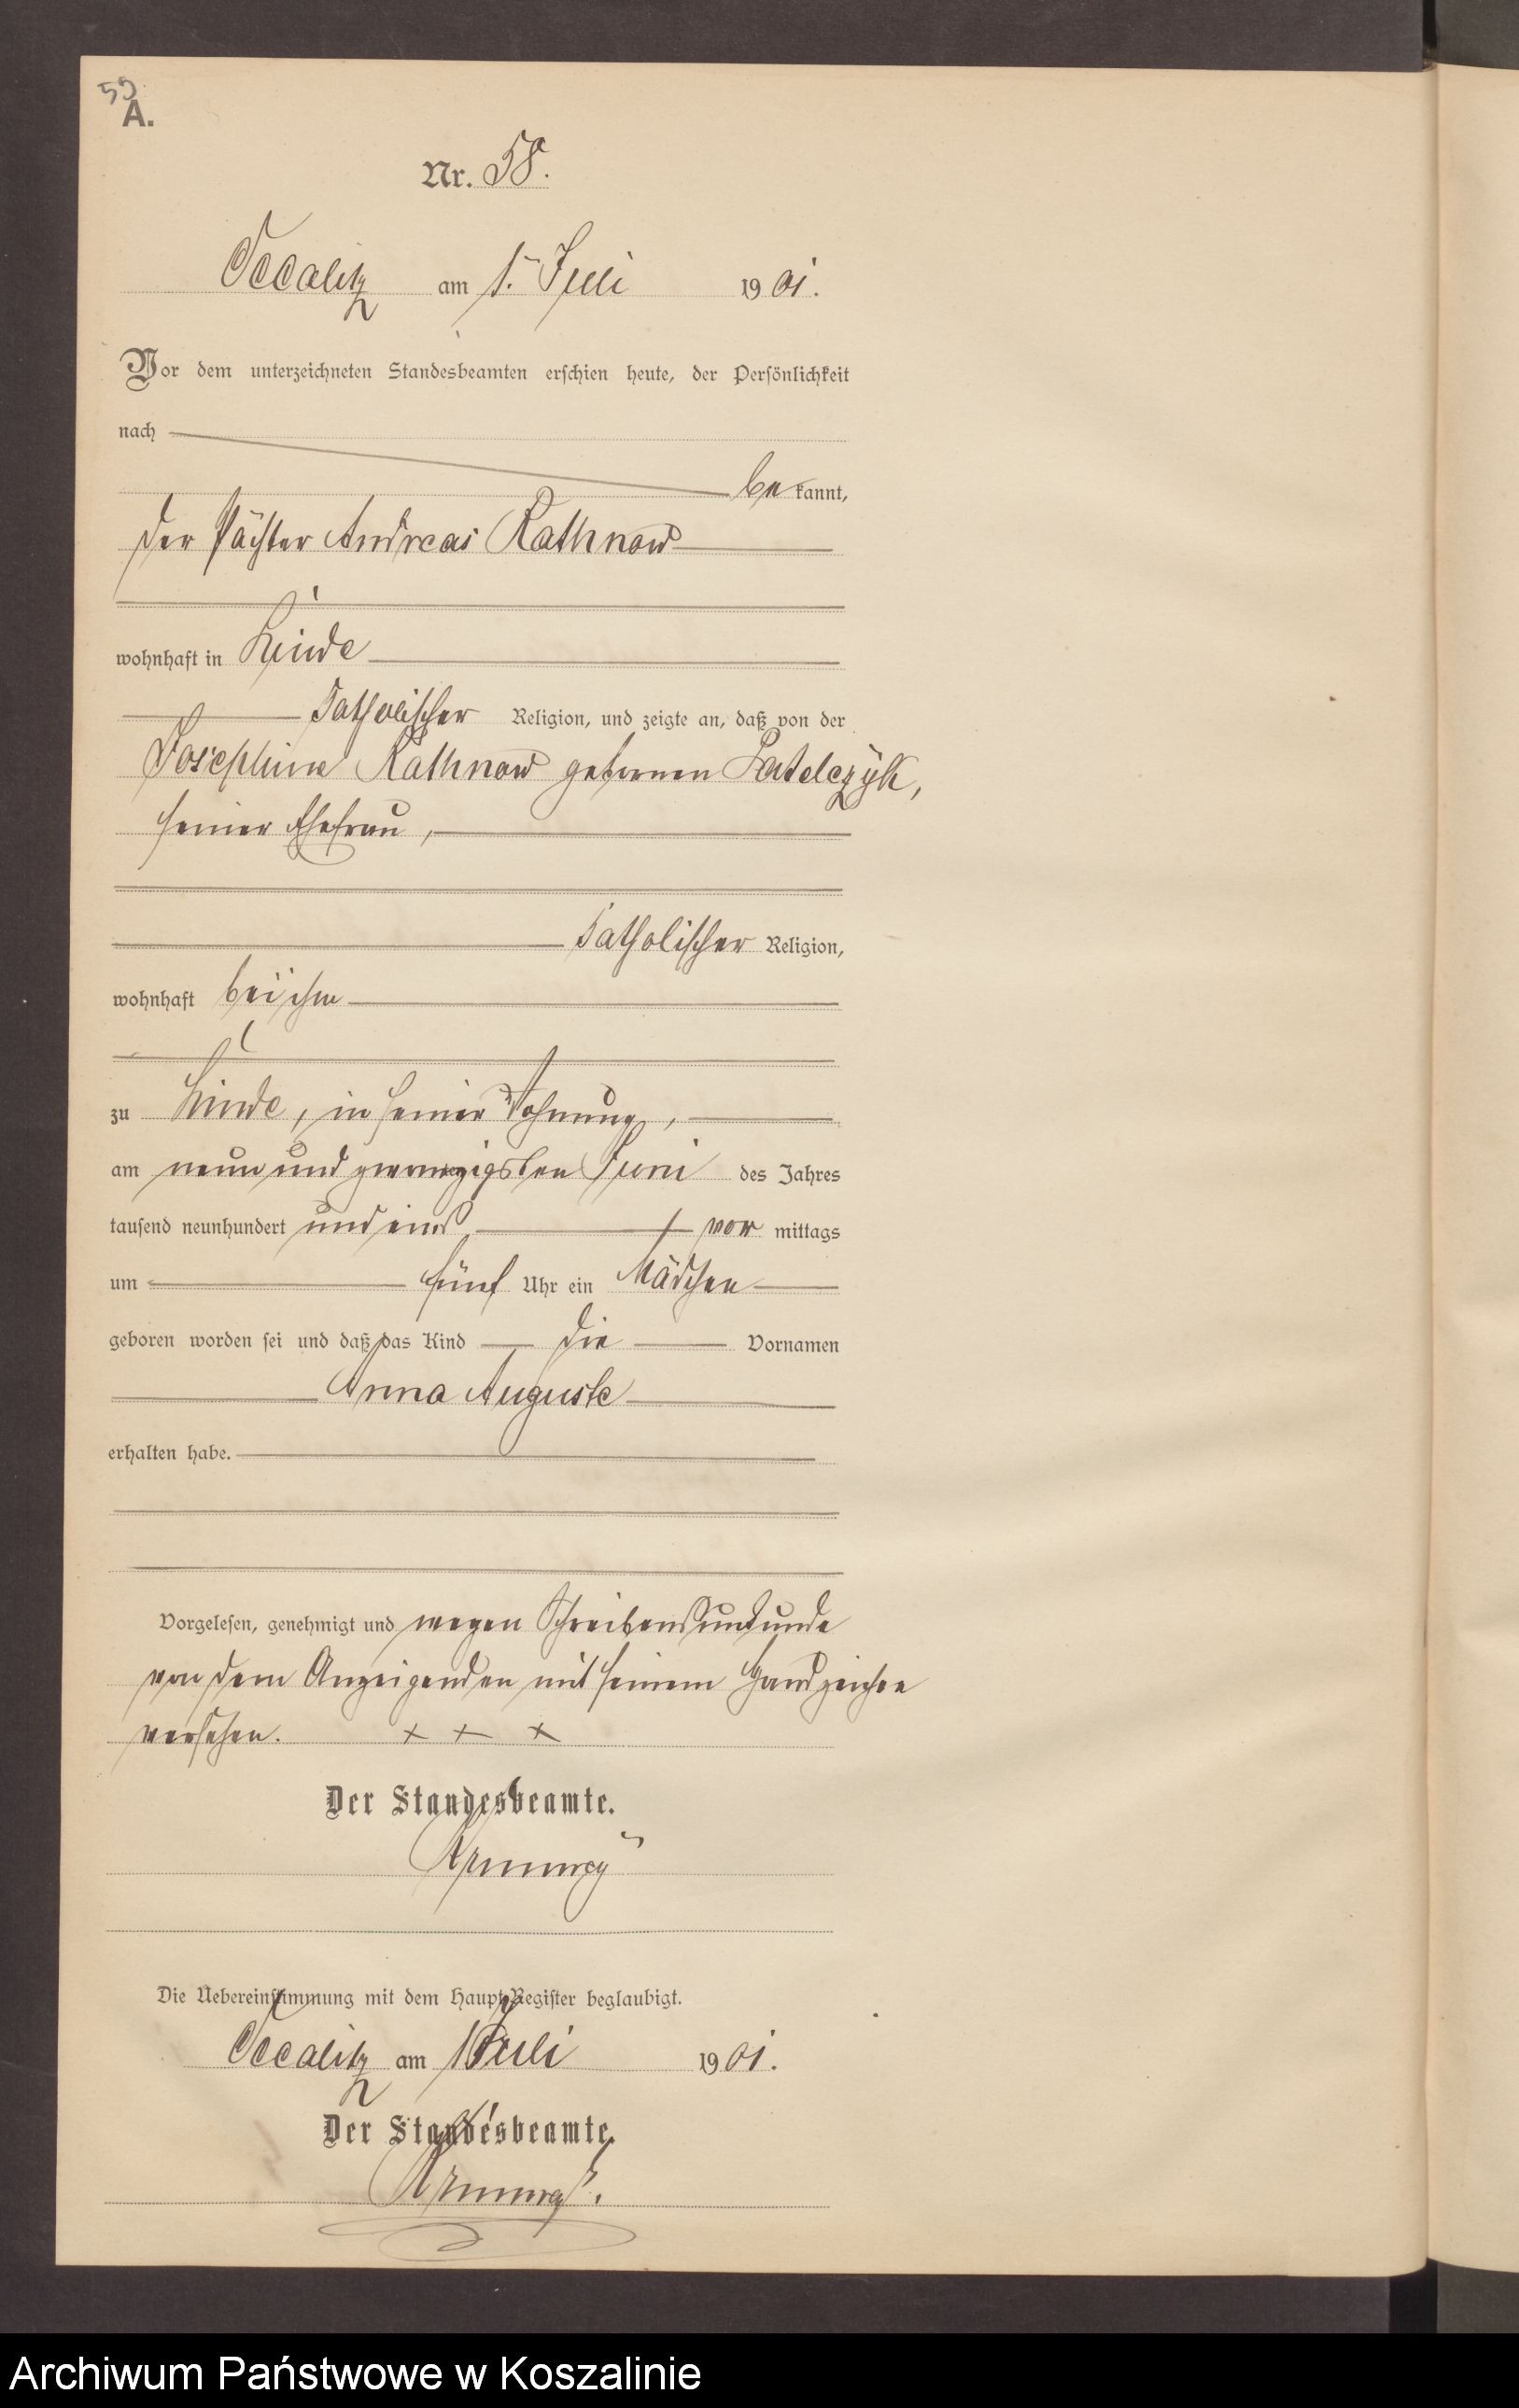 59
A.
Nr. 58.
Occalitz am 1. Juli 1901.
Vor dem unterzeichneten Standesbeamten erschien heute, der Persönlichkeit
nach
bekannt,
der Pächter Andreas Rathnow
wohnhaft in Linde
katholischer Religion, und zeigte an, daß von der
Josephine Rathnow geborenen Patelczÿk,
seiner Ehefrau,
katholischer Religion,
wohnhaft bei ihm
zu Linde, in seiner Wohnung,
am neun und zwanzigsten Juni des Jahres
tausend neunhundert und eins vor mittags
um fünf Uhr ein Mädchen
geboren worden sei und daß das Kind die Vornamen
Anna Auguste
erhalten habe.
Vorgelesen, genehmigt und wegen Schreibensunkunde
von dem Anzeigenden mit seinem Handzeichen
versehen. + + +
Der Standesbeamte.
Die Uebereinstimmung mit dem Haupt-Register beglaubigt.
Occalitz am 1 Juli 1901.
Der Standesbeamte.
Archiwum Państwowe w Koszalinie